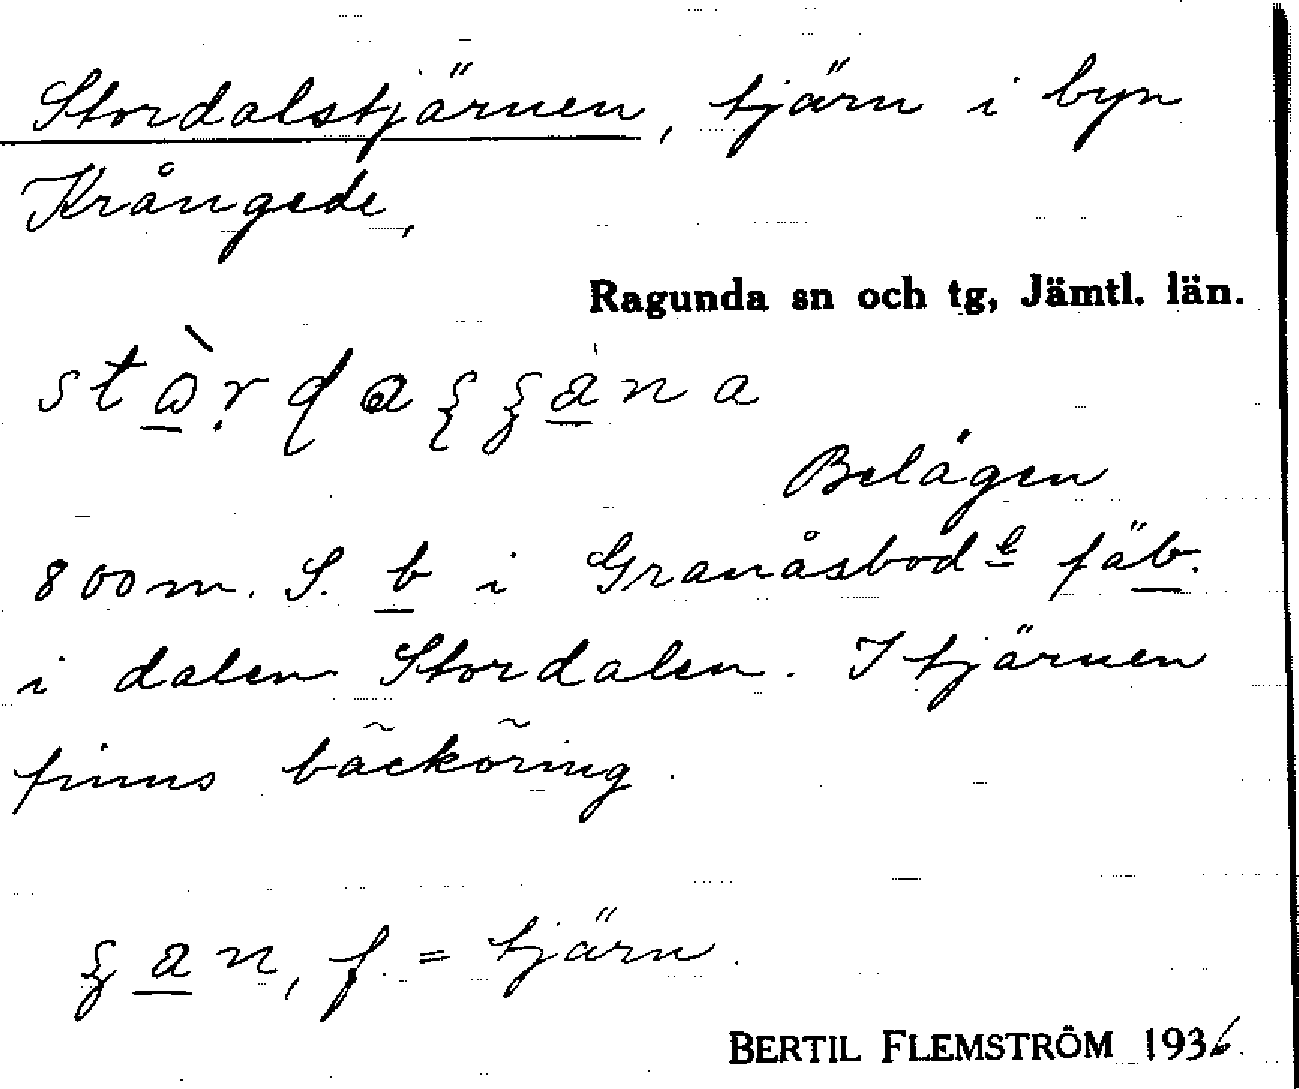 Stordalstjärnen, tjärn i byn
Krångede,
Ragunda sn och tg, Jämtl. län.
Belägen
800 m. S. b i Granåsbode fäb.
i dalen Stordalen. I tjärnen
finns bäcköring.
f. = tjärn.
BERTIL FLEMSTRÖM 1936